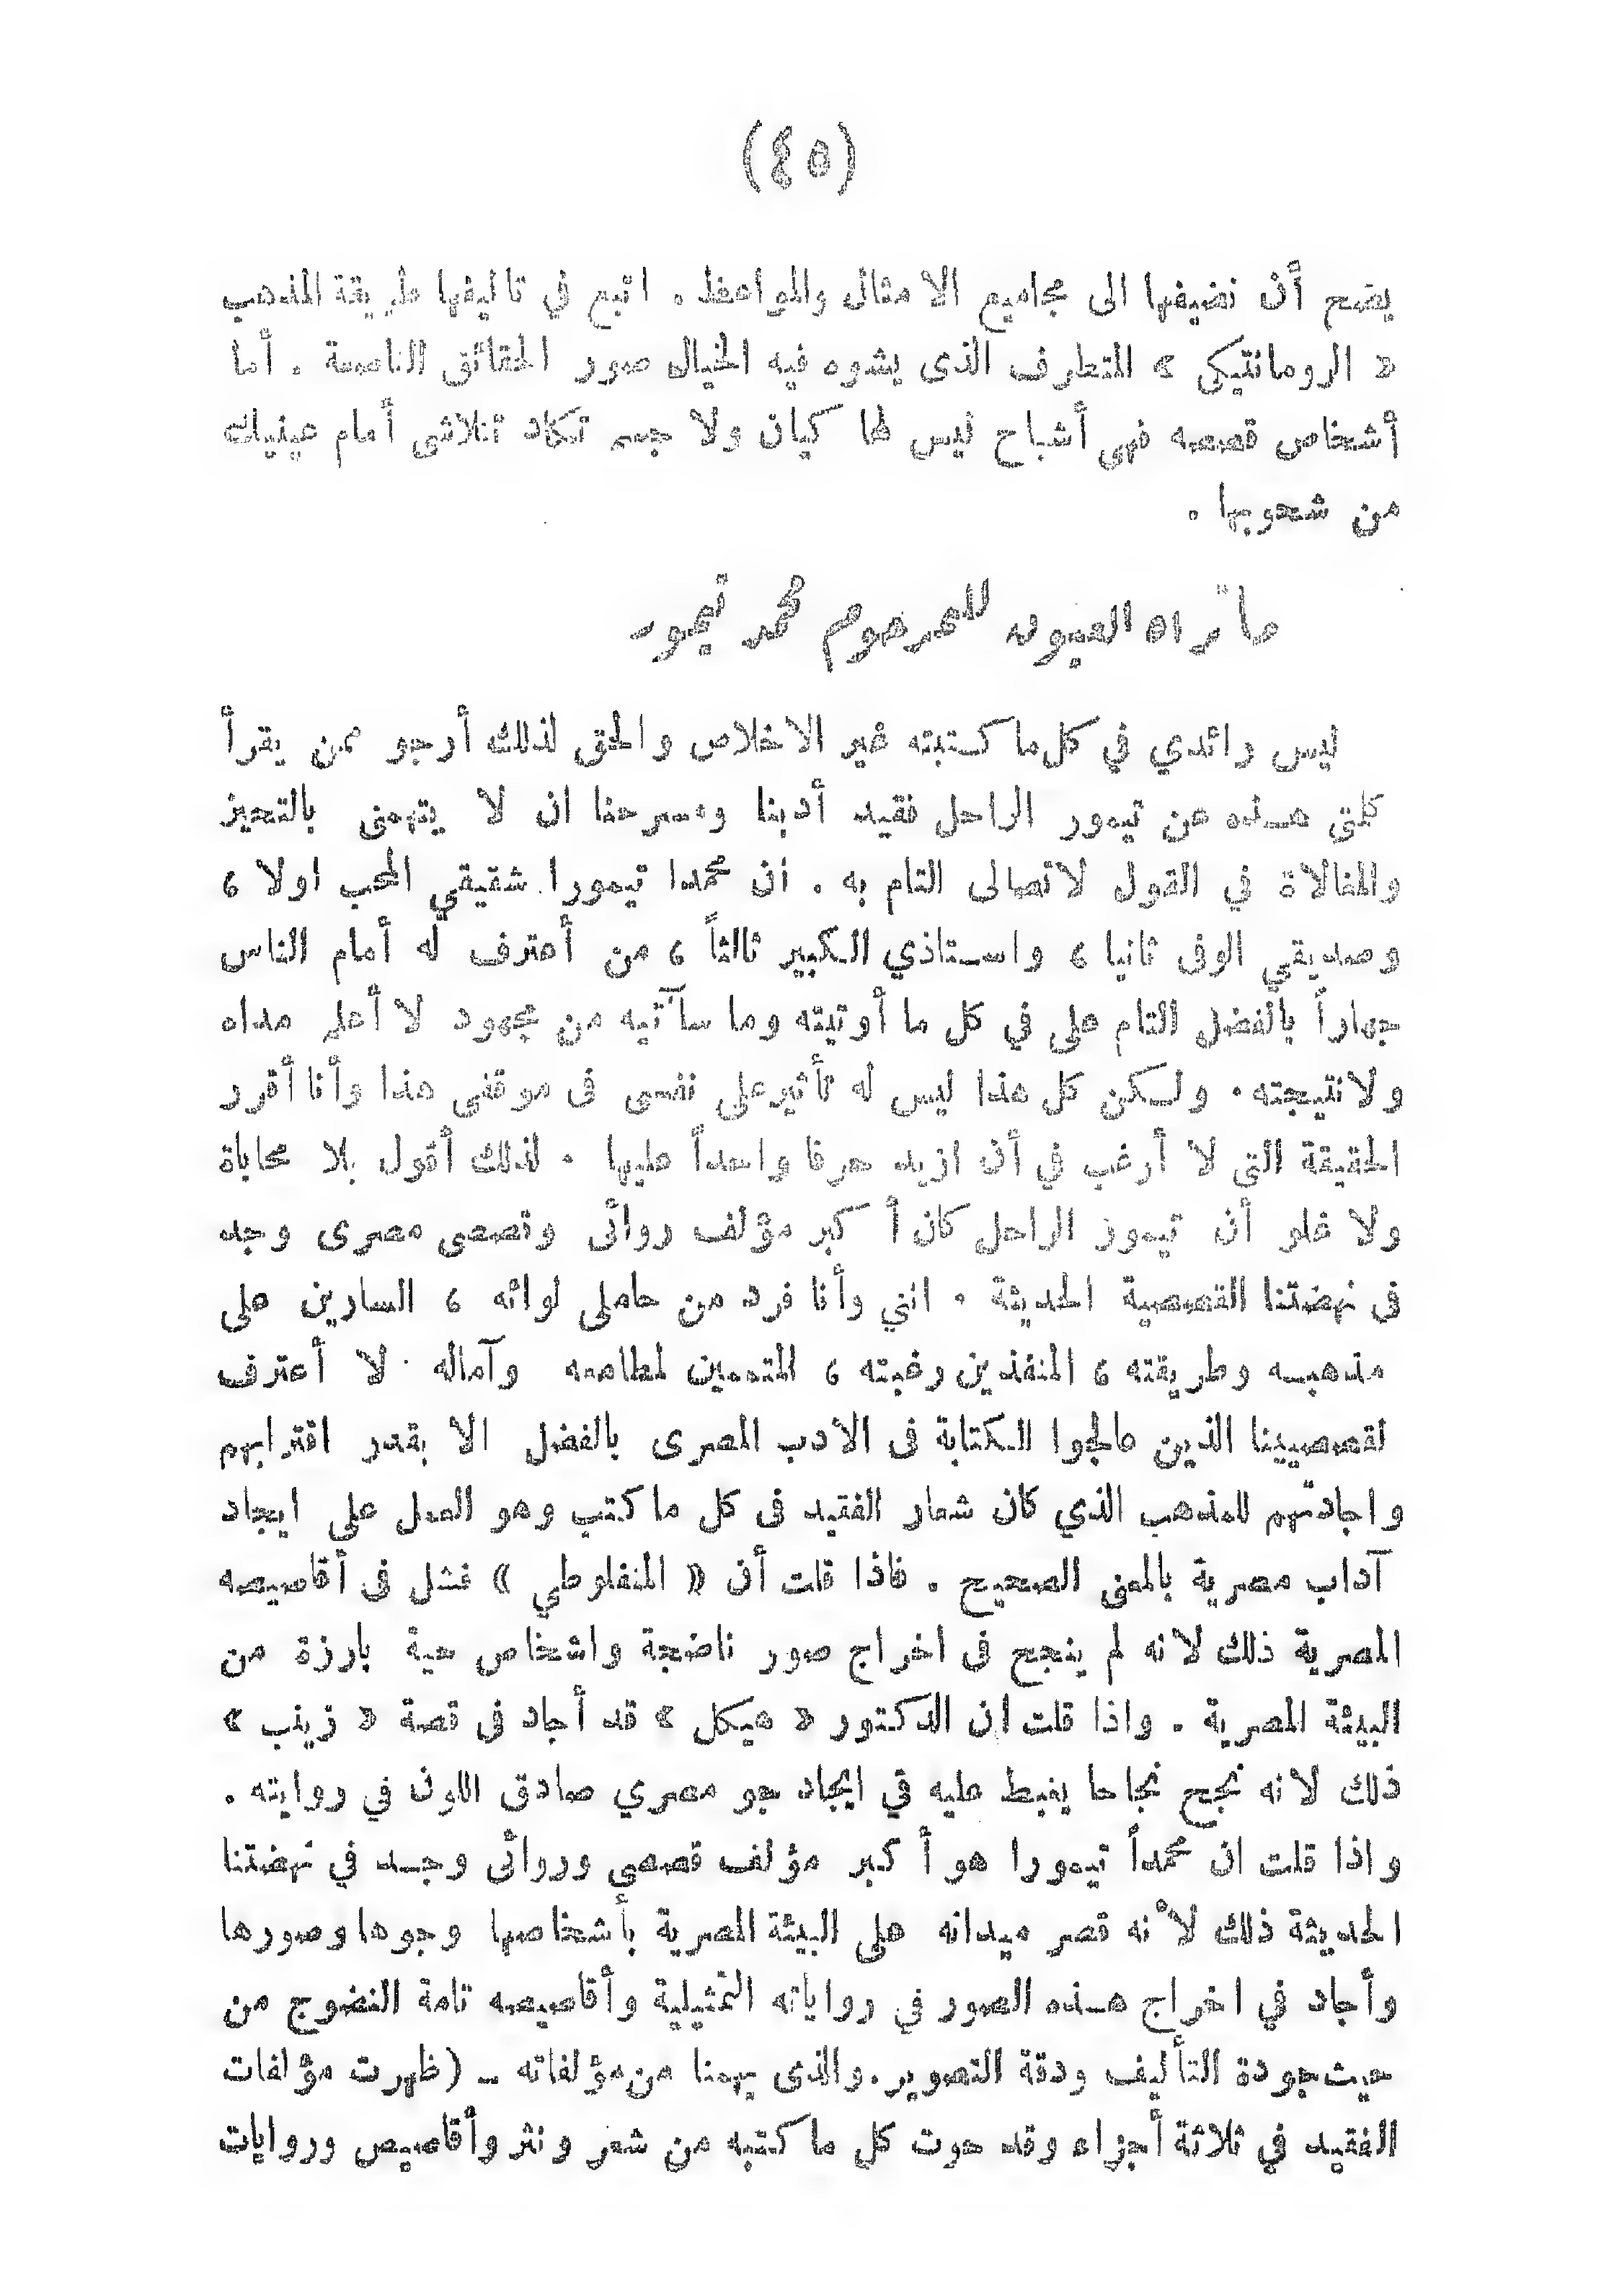 (٤٥)
يضح أن نضيفها الى مجاميع الامثال والمواعظ . اتبع في تاليفها طريقة المذهب
« الرومانتيكى » المتطرف الذى يشوه فيه الخيال صور الحقائق الناصعة . أما
أشخاص قصصه فهى أشباح ليس لها كيان ولا جسم تكاد تتلاشى أمام عينيك
من شحوبها .
ما تراه العيون للمرحوم محمد تيمور
ليس رائدي في كل ما كتبته غير الاخلاص والحق لذلك أرجو ممن يقرأ
كلتى هذه عن تيمور الراحل فقيد أدبنا ومسرحنا ان لا يتهمنى بالتحيز
والمغالاة في القول لاتصالى التام به . ان محمدا تيمورا شقيقي المحب اولا ،
وصديقي الوفى ثانيا ، واستاذي الكبير ثالثاً ، من أعترف له أمام الناس
جهاراً بالفضل التام على في كل ما أوتيته وما سآتيه من مجهود لا أعلم مداه
ولا نتيجته . ولكن كل هذا ليس له تأثير على نفسى فى موقفى هذا وأنا أقرر
الحقيقة التى لا أرغب في أن ازيد حرفا واحداً عليها . لذلك أقول بلا محاباة
ولا غلو أن تيمور الراحل كان أكبر مؤلف روائى وقصصى مصرى وجد
فى نهضتنا القصصية الحديثة . اننى وأنا فرد من حاملى لوائه ، السارين على
مذهبه وطريقته ، المنفذين رغبته ، المتممين لمطامعه وآماله . لا أعترف
لقصصيينا الذين عالجوا الكتابة فى الادب المصرى بالفضل الا بقدر اقترابهم
واجادتهم للمذهب الذي كان شعار الفقيد فى كل ما كتب وهو العمل على ايجاد
آداب مصرية بالمعنى الصحيح . فاذا قلت أن « المنفلوطي » فشل فى أقاصيصه
المصرية ذلك لانه لم ينجح فى اخراج صور ناضجة واشخاص حية بارزة من
البيئة المصرية . واذا قلت ان الدكتور « هيكل » قد أجاد فى قصة « زينب »
ذلك لانه نجح نجاحا يغبط عليه في ايجاد جو مصري صادق اللون في روايته .
واذا قلت ان محمداً تيمورا هو أكبر مؤلف قصصى وروائى وجد في نهضتنا
الحديثة ذلك لأنه قصر ميدانه على البيئة المصرية بأشخاصها وجوها وصورها
وأجاد في اخراج هذه الصور في رواياته التمثيلية وأقاصيصه تامة النضوج من
حيث جودة التأليف ودقة التصوير . والذى يهمنا من مؤلفاته – (ظهرت مؤلفات
الفقيد في ثلاثة أجزاء وقد حوت كل ما كتبه من شعر ونثر وأقاصيص وروايات